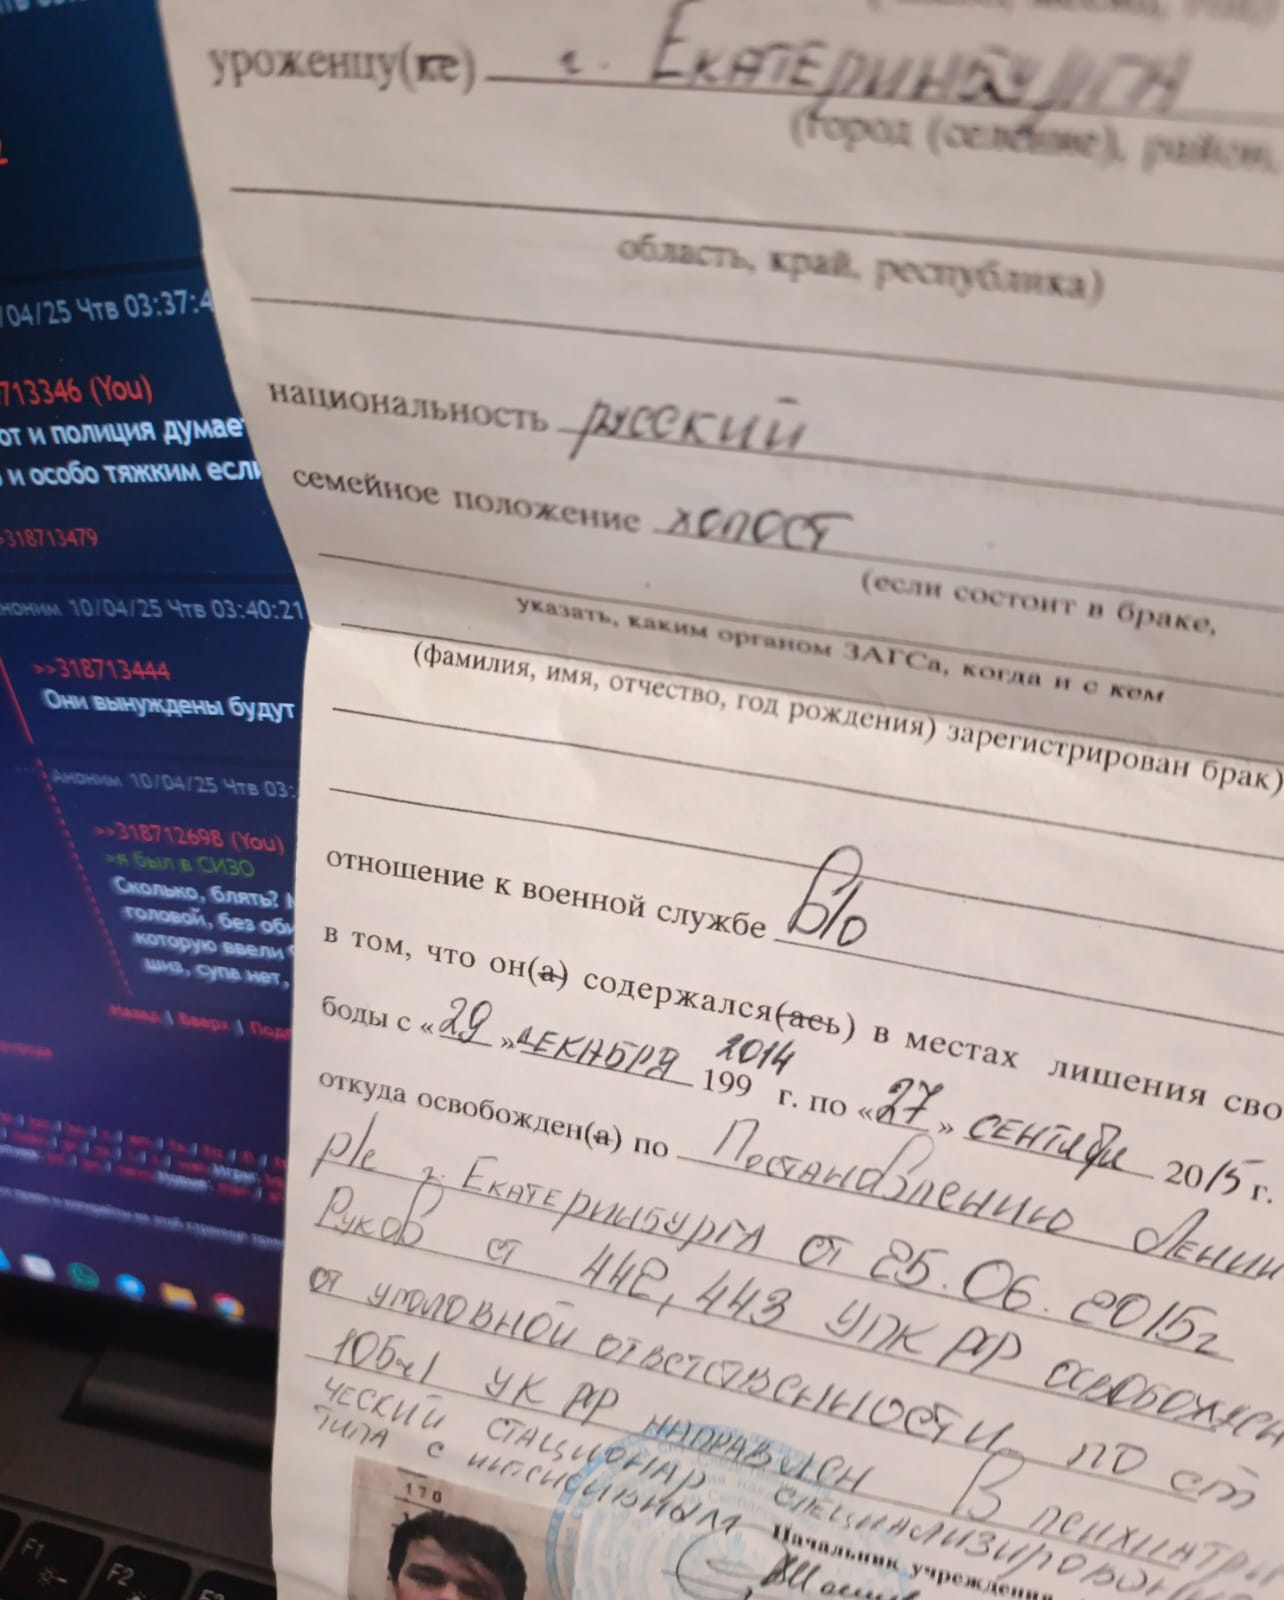 уроженцу(ке) г. Екатеринбурга
(город (селение), район,
область, край, республика)
национальность русский
семейное положение холост
(если состоит в браке,
указать, каким органом ЗАГСа, когда и с кем
(фамилия, имя, отчество, год рождения) зарегистрирован брак)
отношение к военной службе в/о
в том, что он(а) содержался(ась) в местах лишения сво
боды с «29» декабря 2014 199 г. по «27» сентября 2015 г.
откуда освобожден(а) по Постановлению Ленин
р/с г. Екатеринбурга от 25.06.2015г
Руков ст 442, 443 УПК РФ освобожден
от уголовной ответственности по ст
105ч1 УК РФ направлен в психиатри
ческий стационар специализирован
типа с интенсивным
Начальник учреждения
170
/04/25 Чтв 03:37:4
713346 (You)
от и полиция думае
и особо тяжким если
>318713479
ноним 10/04/25 Чтв 03:40:21
>>318713444
Они вынуждены будут
Аноним 10/04/25 Чтв 03:
>>318712698 (You)
>я был в СИЗО
Сколько, блять?
головой, без оби
которую ввели
шиз, супа нет,
Назад | Вверх |
F1
F2